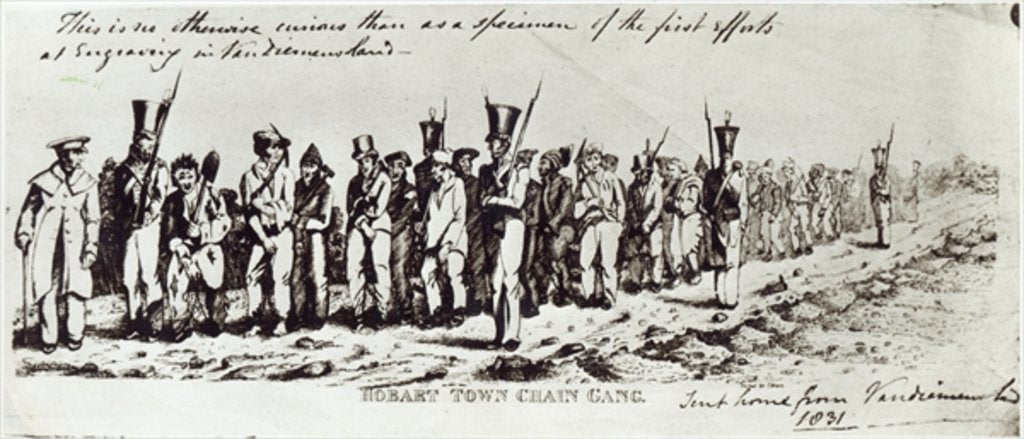 This is no otherwise curious than as a specimen of the first Efforts
at Engraving in Vandiemensland —
HOBART TOWN CHAIN GANG.
Sent home from Vandiemens
1831